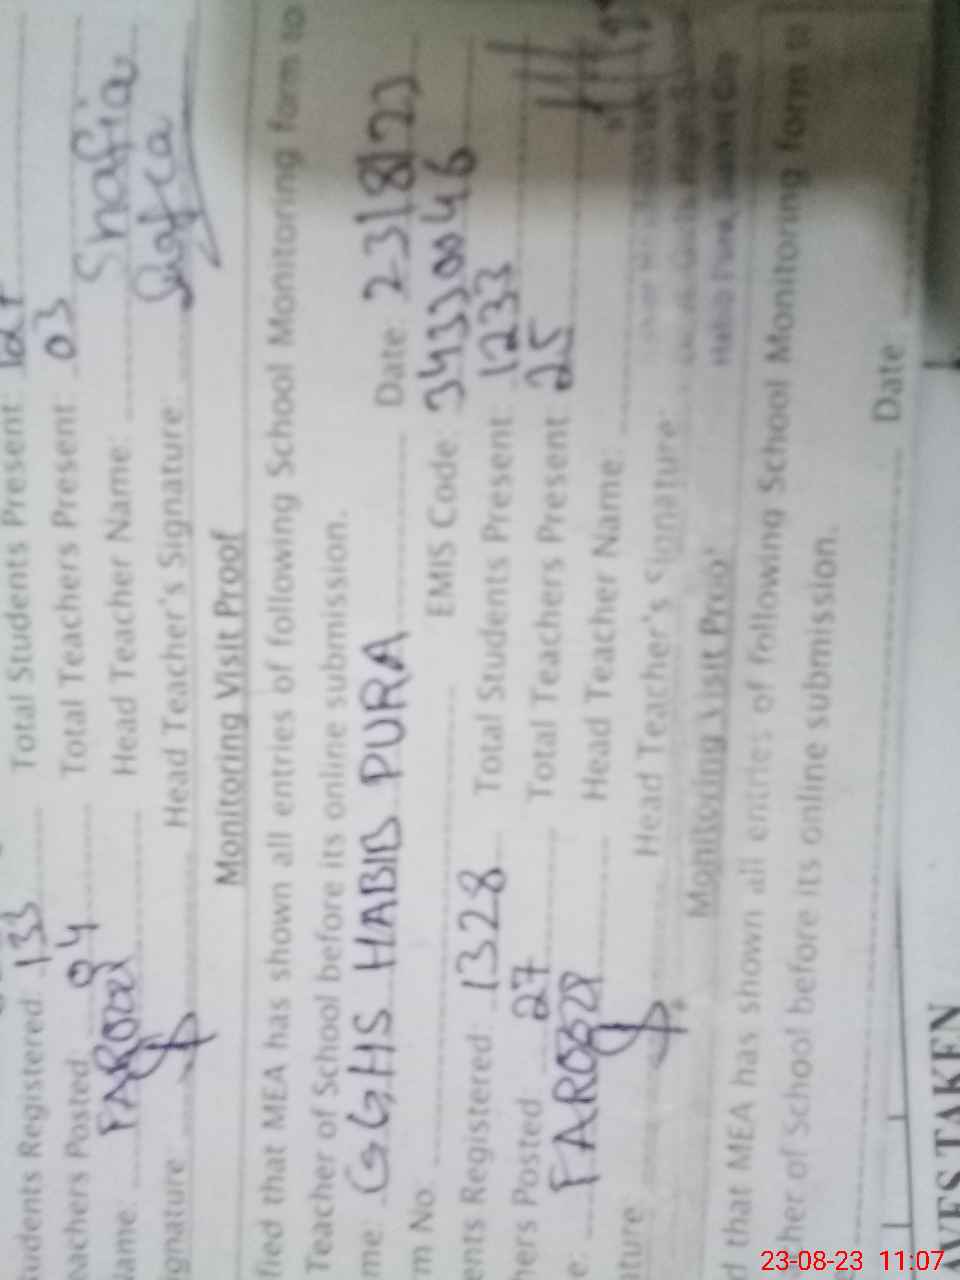 udents Registered: 133 Total Students Present:
eachers Posted 04 Total Teachers Present 03
ame: FAROOQ Head Teacher Name: Shafia
ignature: Head Teacher's Signature:
Monitoring Visit Proof
fied that MEA has shown all entries of following School Monitoring form to
Teacher of School before its online submission.
me: GGHS HABIB PURA Date: 23/8/23
m No: EMIS Code: 34330046
ents Registered: 1328 Total Students Present: 1233
hers Posted 27 Total Teachers Present 25
e: FAROOQ Head Teacher Name:
ature Head Teacher's Signature:
Monitoring Visit Proof
d that MEA has shown all entries of following School Monitoring form to
cher of School before its online submission.
Date
AVES TAKEN
23-08-23 11:07